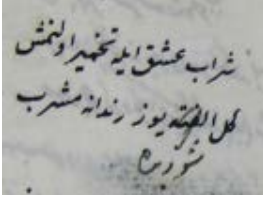 شراب عشق ايله تخمير اولنمش
كل يوز رندانه مشرب